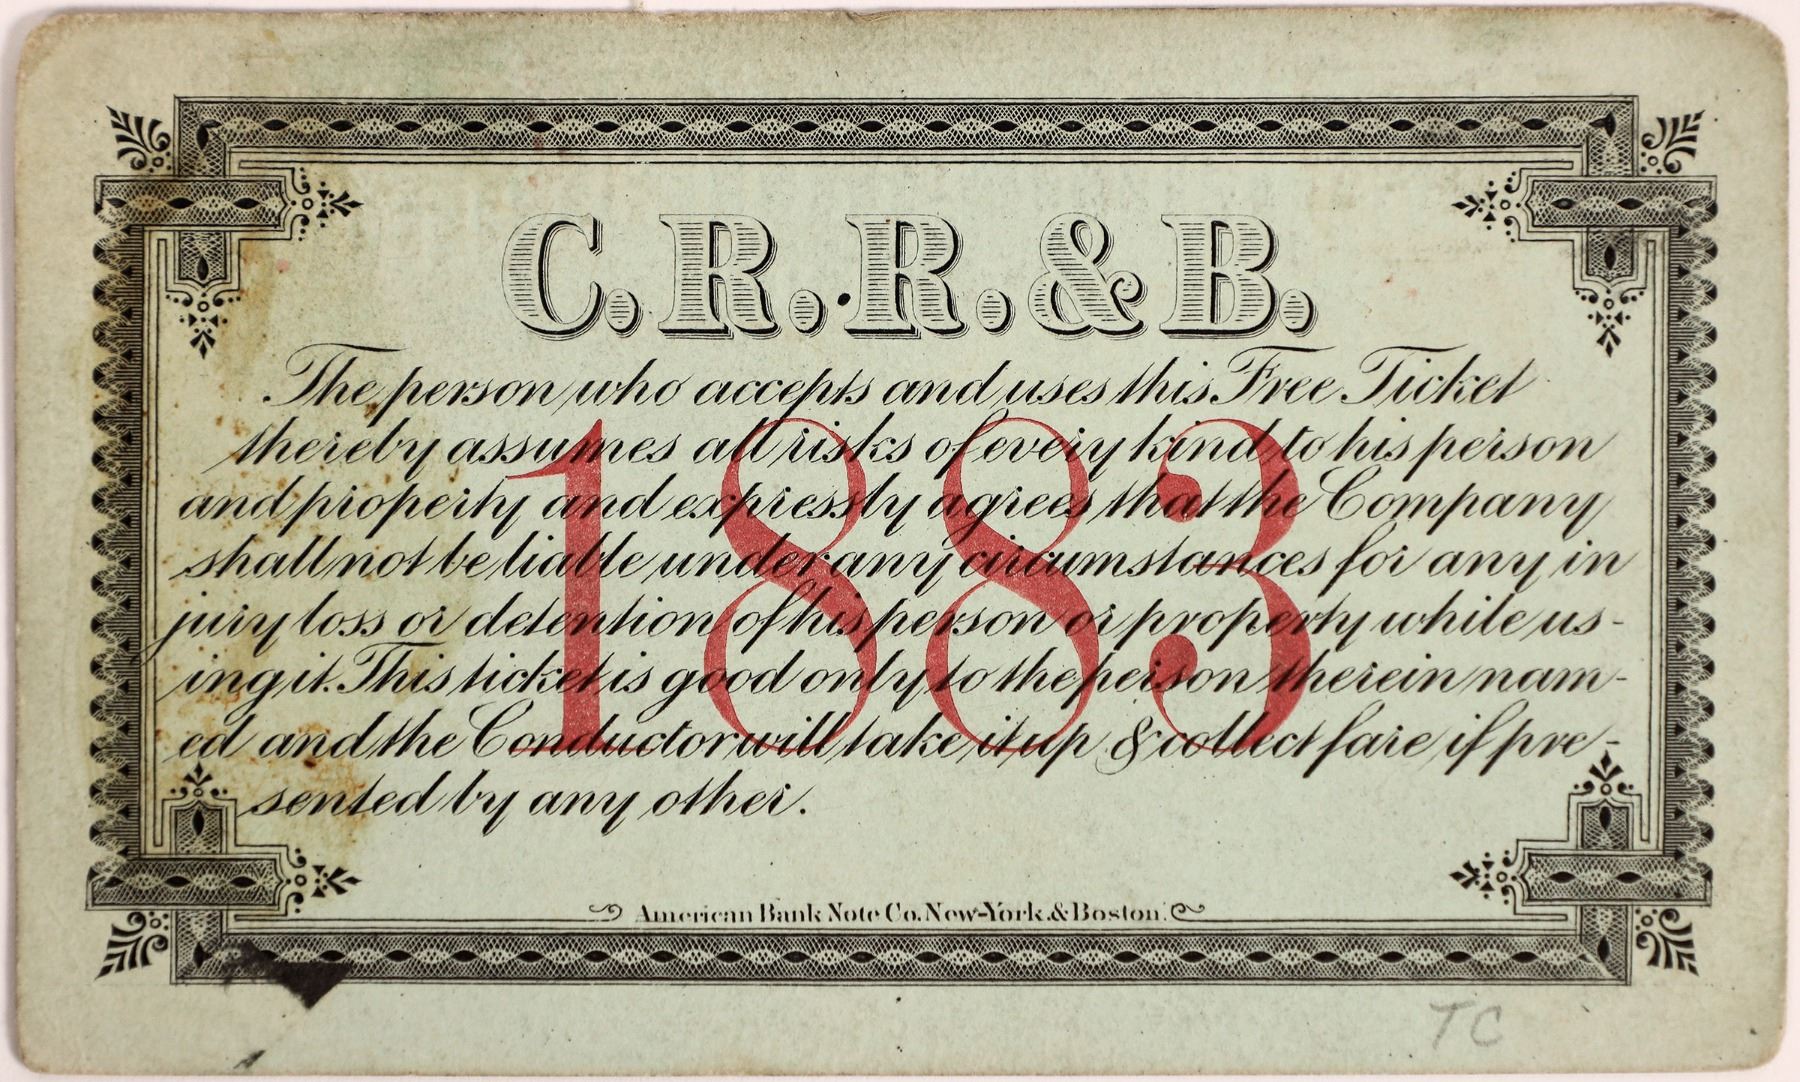 C. R. R. & B.
The person who accepts and uses this Free Ticket
thereby assumes all risks of every kind to his person
and property and expressly agrees that the Company
shall not be liable under any circumstances for any in
jury loss or detention of his person or property while us-
ing it. This ticket is good only to the person therein nam-
ed and the Conductor will take it up & collect fare if pre-
sented by any other.
1883
American Bank Note Co. New-York & Boston.
TC